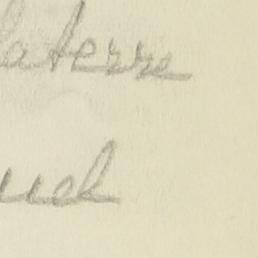 laterre
ud